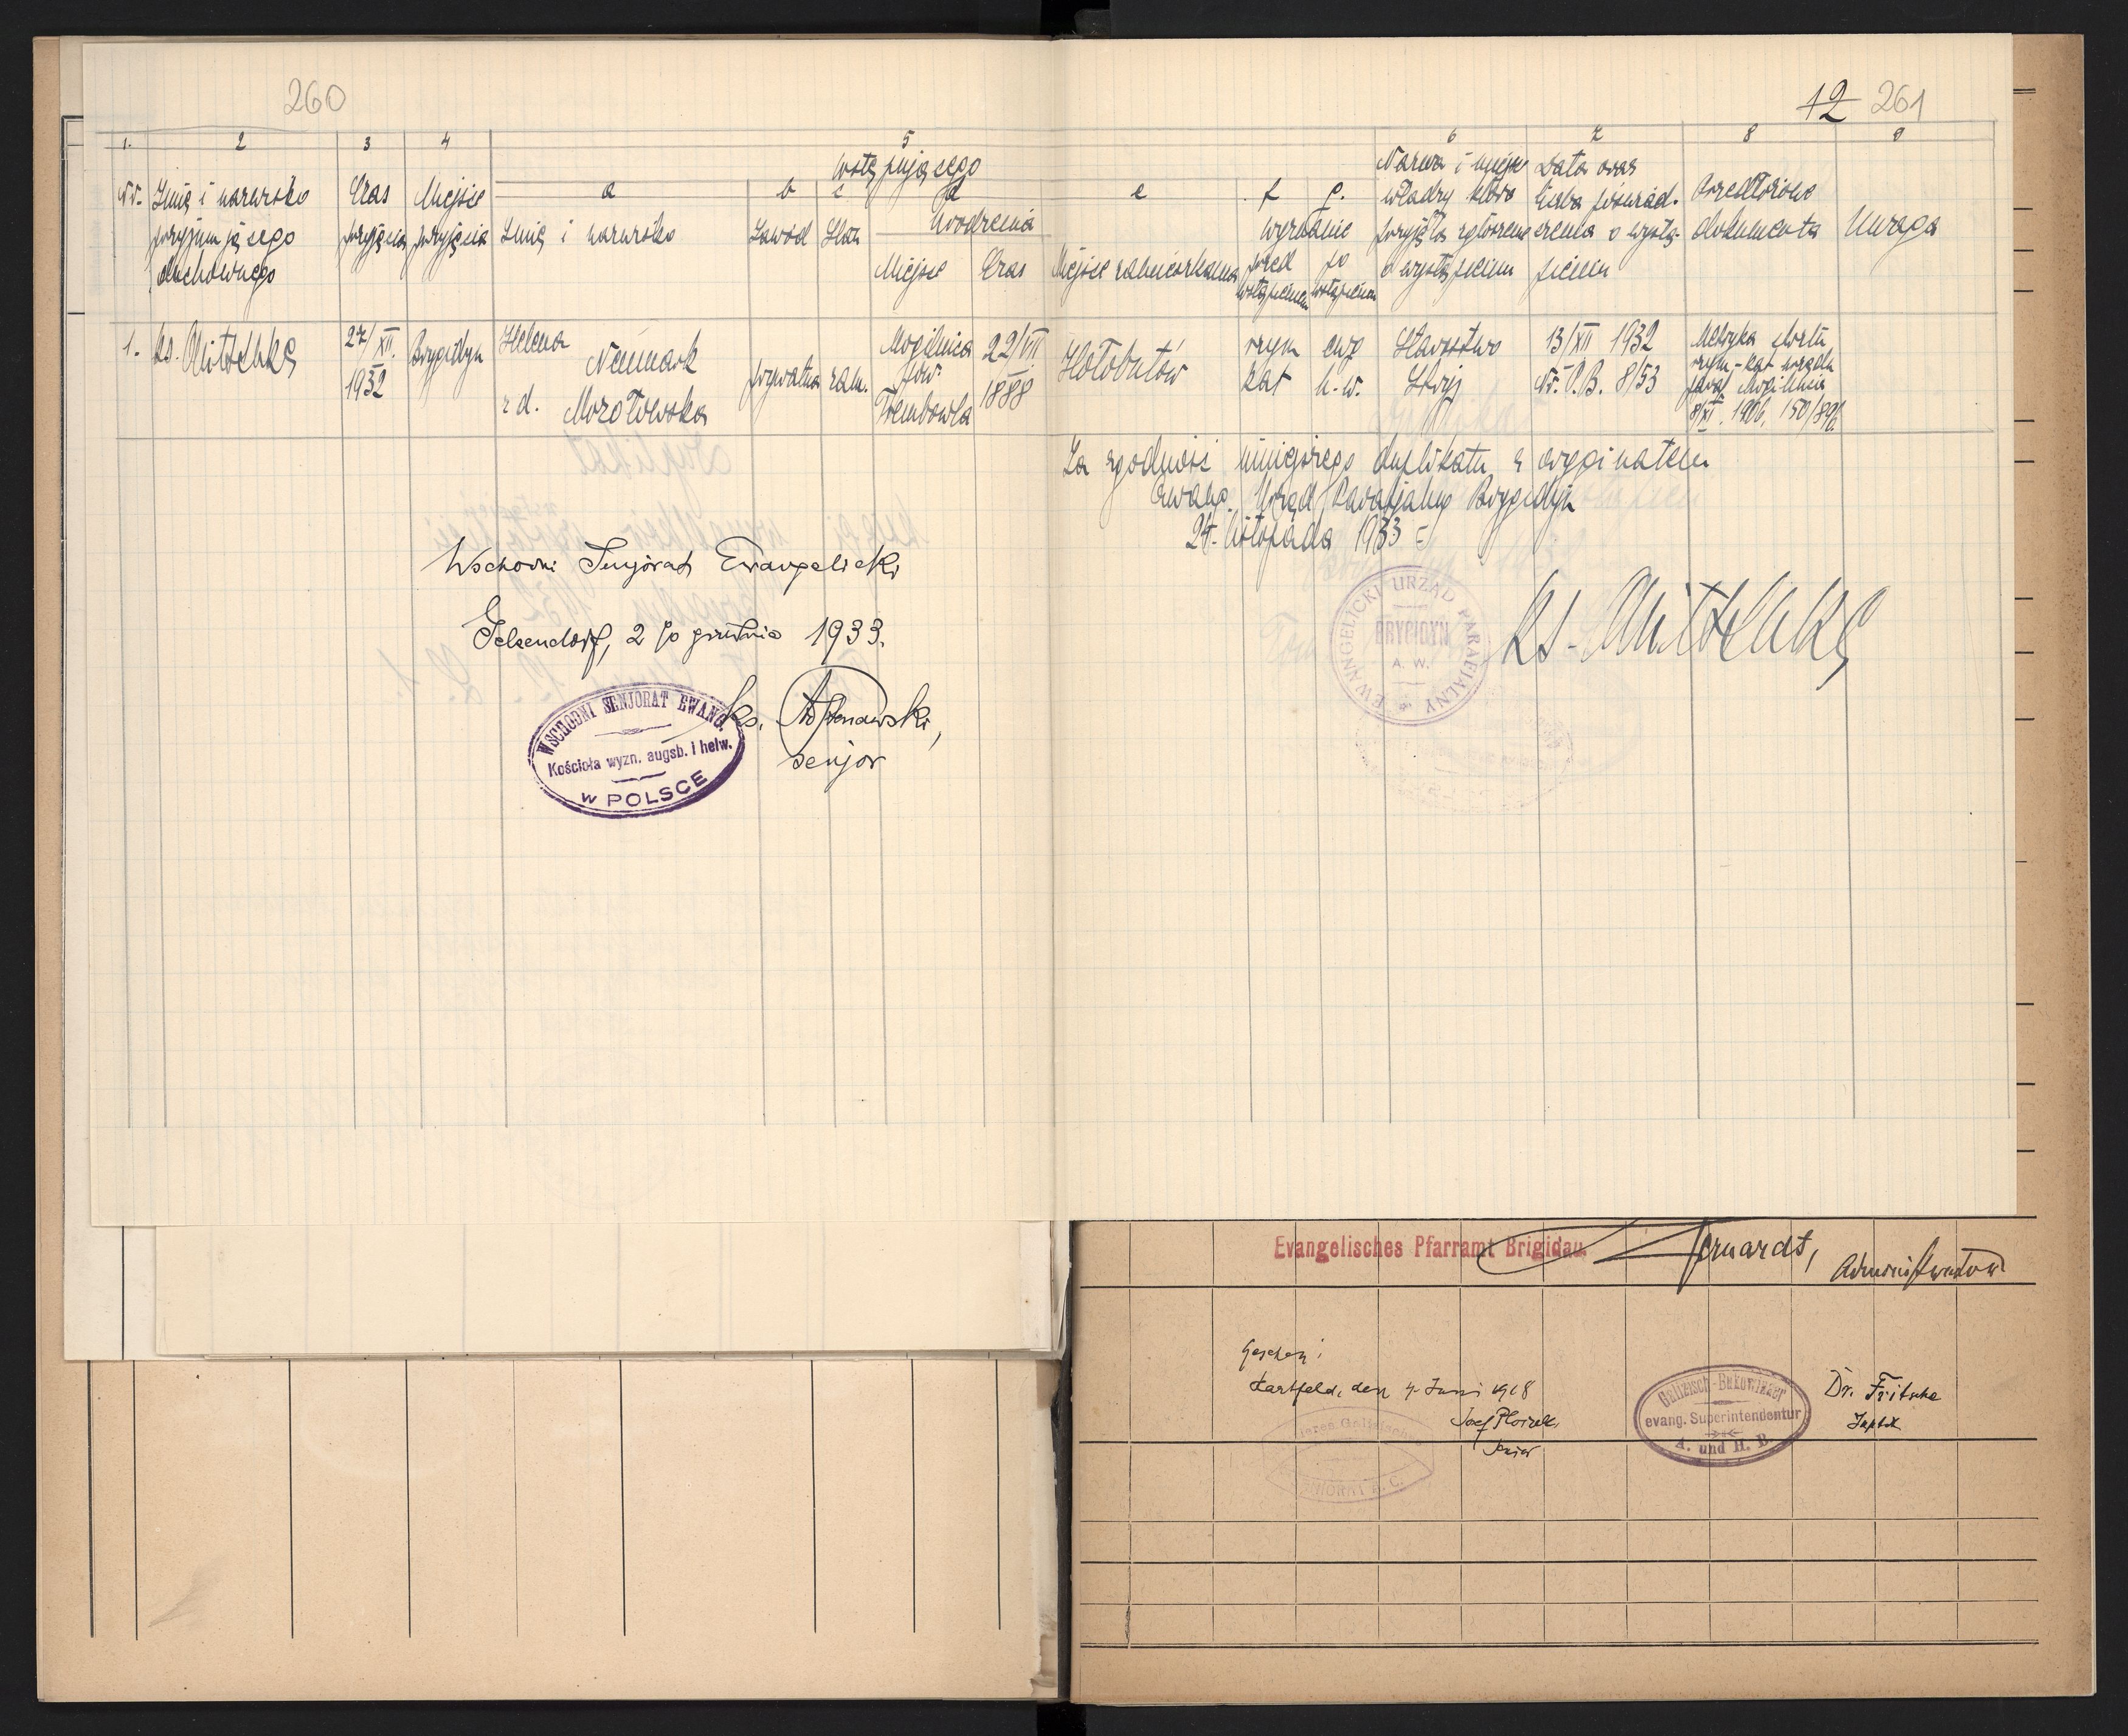 260
12 261
1. 2 3 4 5 6 7 8 9
wstępującego
a b c d e f g.
Nr. Imię i nazwisko przyjmującego duchownego
Czas przyjęcia
Miejsce przyjęcia
Imię i nazwisko
Zawód
Stan
Urodzenia
Miejsce Czas
Miejsce zamieszkania
wyznanie
przed wstąpieniem
po wstąpieniu
Nazwa i miejsce władzy która przyjęła zgłoszenie o wystąpieniu
Data oraz liczba poświadczenia o wystąpieniu
Przedłożono dokumenta
Uwaga
1. ks. Mitschke
27/XII. 1932
Brygidyn
Helena
Neumark
zd. Mozołowska
prywatna
zam.
Mogilnica
pow.
Trembowla
22/VII. 1888
Hołobutów
rzym kat
ewg h.-w.
Starostwo Stryj
13/XII 1932
Nr. P.B. 8/53
Metryka chrztu
rzym.-kat urzędu
paraf. Mogilnica
8/XI. 1906,
Za zgodność niniejszego duplikatu z oryginałem
Ewang. Urząd Parafjalny Brygidyn
24. listopada 1933
EWANGELICKI URZĄD PARAFJALNY
BRYGIDYN
A. W.
ks. Mitschke
Wschodni Senjorat Ewangelicki
Gelsendorf, 2 go grudnia 1933.
WSCHODNI SENJORAT EWANG.
Kościoła wyzn. augsb. i helw.
w POLSCE
ks.
senjor
Evangelisches Pfarramt Brigidau.
Administrator
Gesehen:
Hartfeld, den 4. Juni 1918
Josef Ploszek,
Senior
SENIORAT A. C.
Galizisch-Bukowinaer
evang. Superintendentur
A. und H. B.
Dr. Fritsche
Suptdt